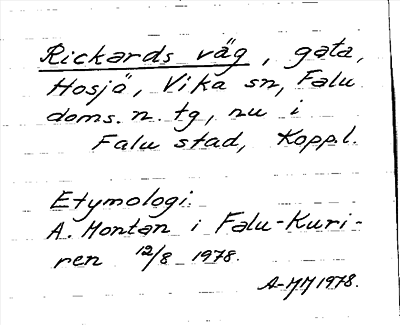 Rickards väg, gata,
Hosjö, Vika sn, Falu
doms. n. tg, nu i
Falu stad, Koppl.
Etymologi:
A. Montan i Falu-Kuri-
ren 12/8 1978.
A-MM 1978.